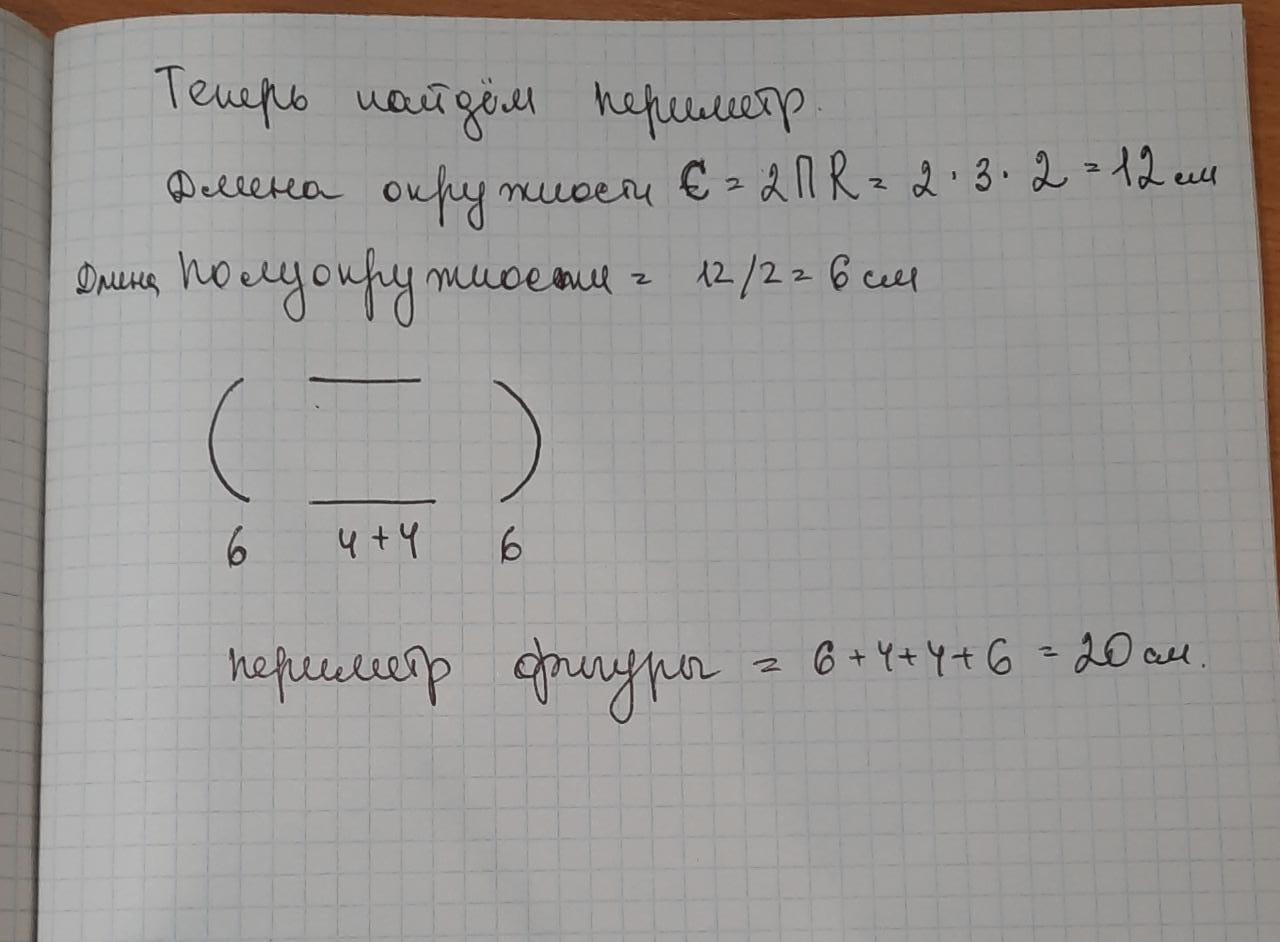 Теперь найдём периметр.
Длина окружности C = 2ПR = 2·3·2 = 12 см
Длина полуокружности = 12/2 = 6 см
6 4+4 6
периметр фигуры = 6+4+4+6 = 20 см.